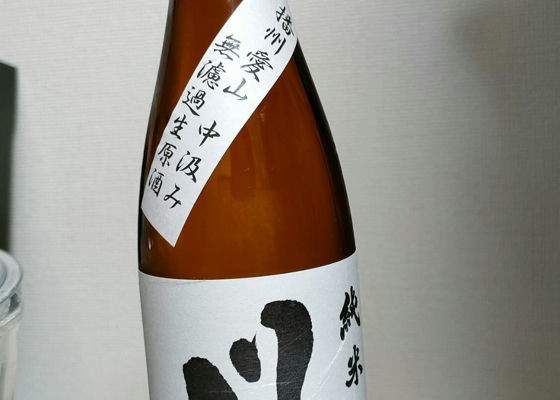 播州愛山 中汲み
無濾過生原酒
純米